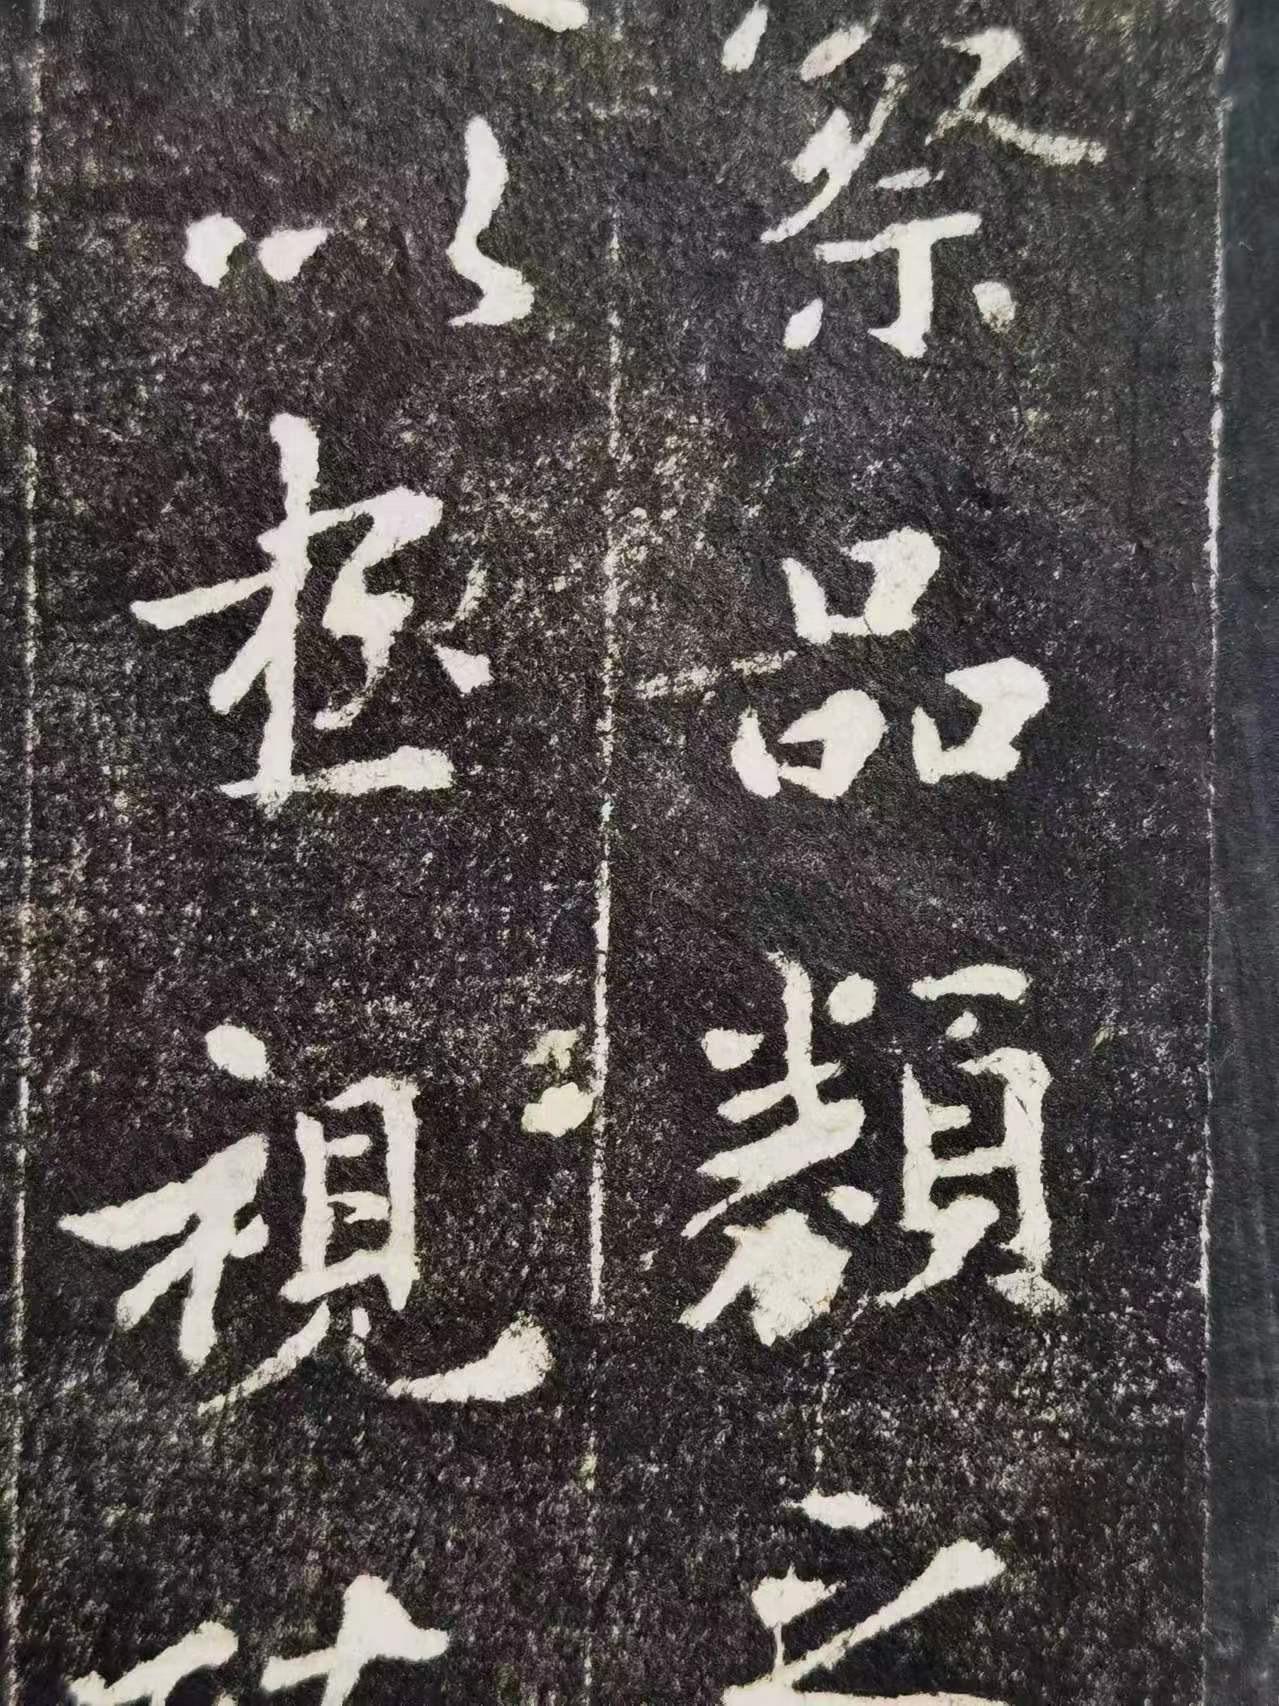 察品類之
以極視聽